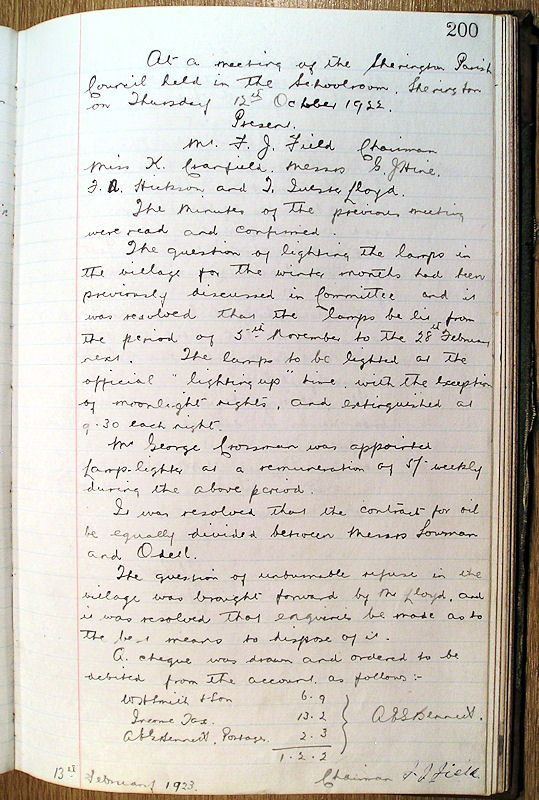 200
At a meeting of the Sherington Parish
Council held in the Schoolroom, Sherington
on Thursday 12th October 1922.
Present.
Mr. F. J. Field Chairman
Miss K. Cranfield, Messrs G. J Hine,
F. A. Hickson and T. Lloyd.
The Minutes of the previous meeting
were read and confirmed.
The question of lighting the lamps in
the village for the winter months had been
previously discussed in Committee and it
was resolved that the lamps be lit from
the period of 5th November to the 28th February
next. The lamps to be lighted at the
official "lighting up" time, with the exception
of moonlight nights, and extinguished at
9.30 each night.
Mr George Crossman was appointed
lamp-lighter at a remuneration of 5/- weekly
during the above period.
It was resolved that the contract for oil
be equally divided between Messrs Lowman
and Odell.
The question of unburnable refuse in the
village was brought forward by Mr Lloyd, and
it was resolved that enquiries be made as to
the best means to dispose of it.
A cheque was drawn and ordered to be
debited from the account as follows:-
W H Smith & Son 6. 9
Income Tax. 13. 2
A E G Bennett. Postage. 2. 3
A E G Bennett.
1. 2. 2
13th February 1923. Chairman F. J Field.